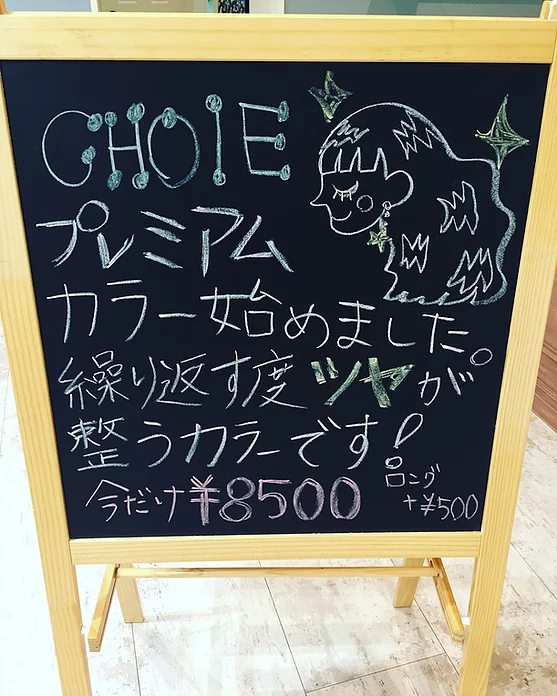 CHOIE
プレミアム
カラー始めました。
繰り返す度ツヤが
整うカラーです!
今だけ¥8500
ロング
+¥500